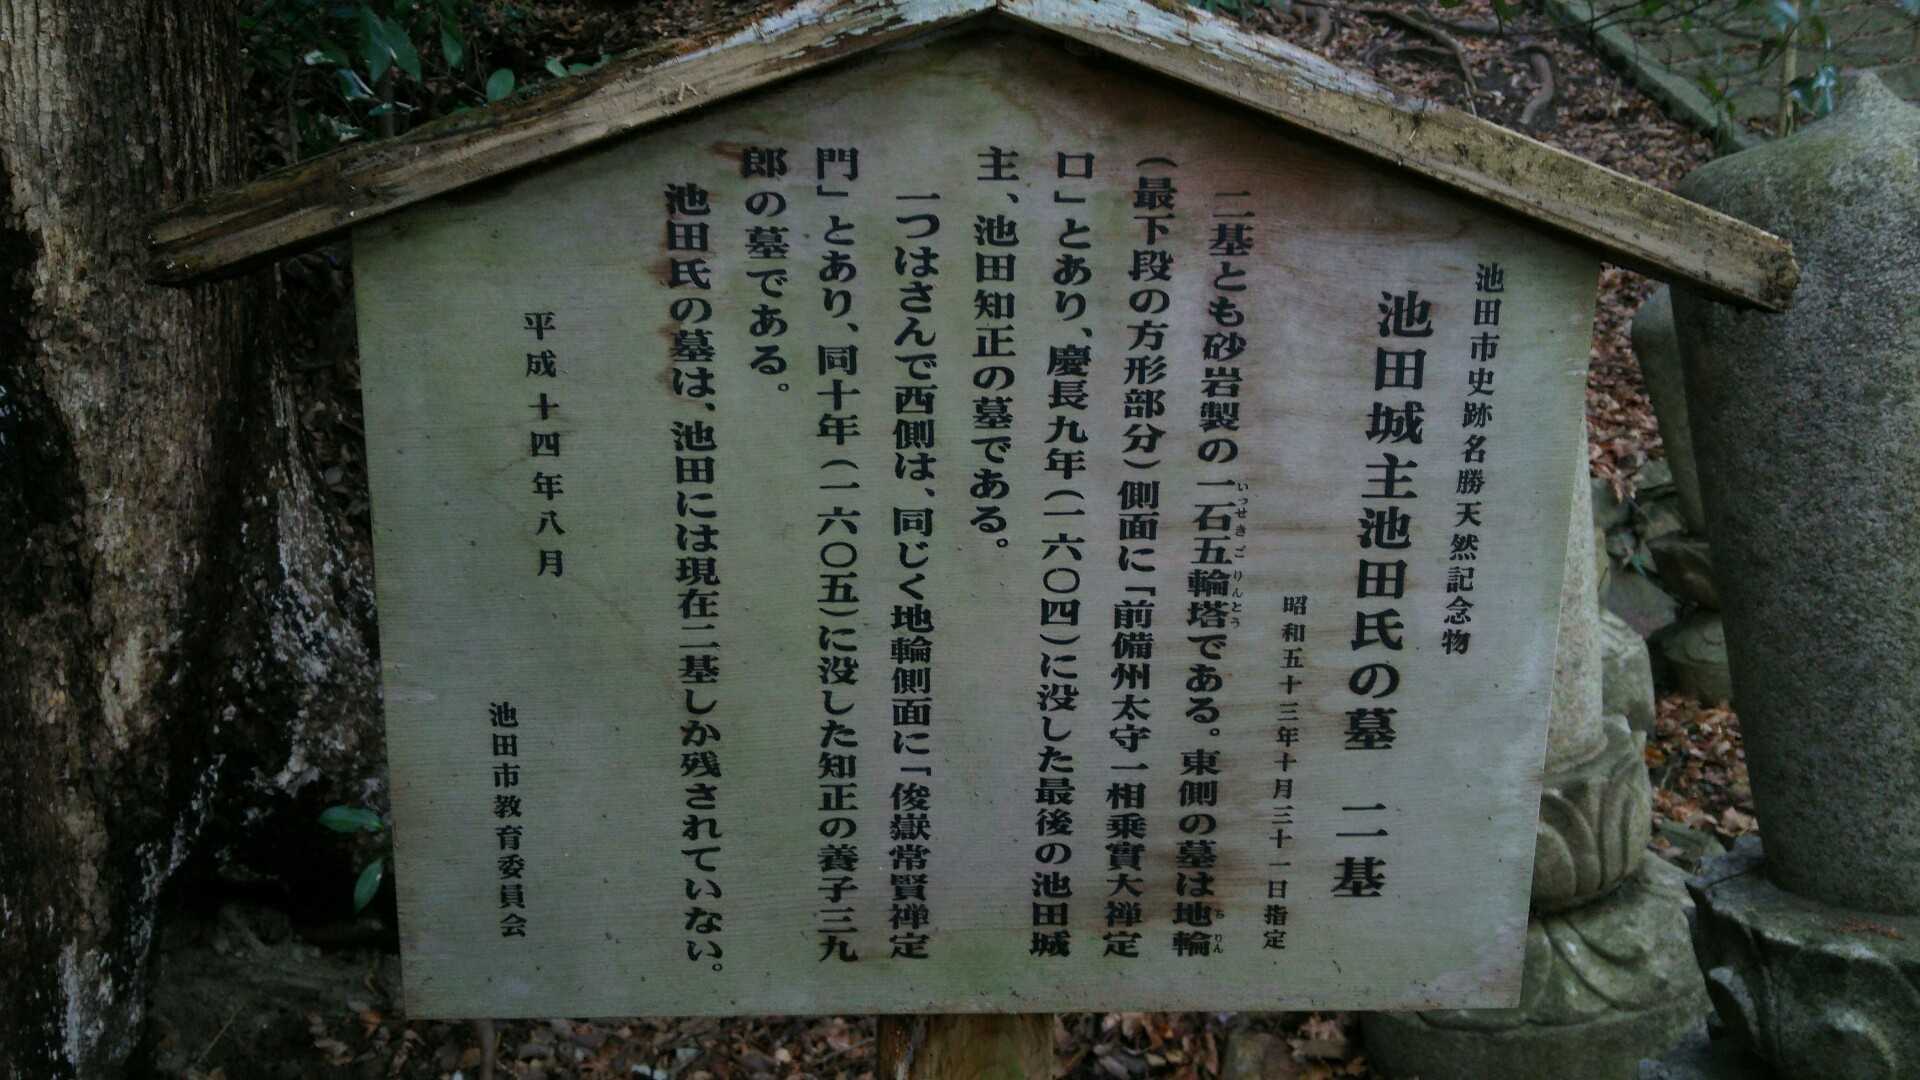 池田市史跡名勝天然記念物
池田城主池田氏の墓　二基
昭和五十三年十月三十一日指定
二基とも砂岩製の一石五輪塔である。東側の墓は地輪
いっせきごりんとう
ちりん
（最下段の方形部分）側面に「前備州太守一相乗實大禅定
口」とあり、慶長九年（一六〇四）に没した最後の池田城
主、池田知正の墓である。
一つはさんで西側は、同じく地輪側面に「俊嶽常賢禅定
門」とあり、同十年（一六〇五）に没した知正の養子三九
郎の墓である。
池田氏の墓は、池田には現在二基しか残されていない。
平成十四年八月
池田市教育委員会